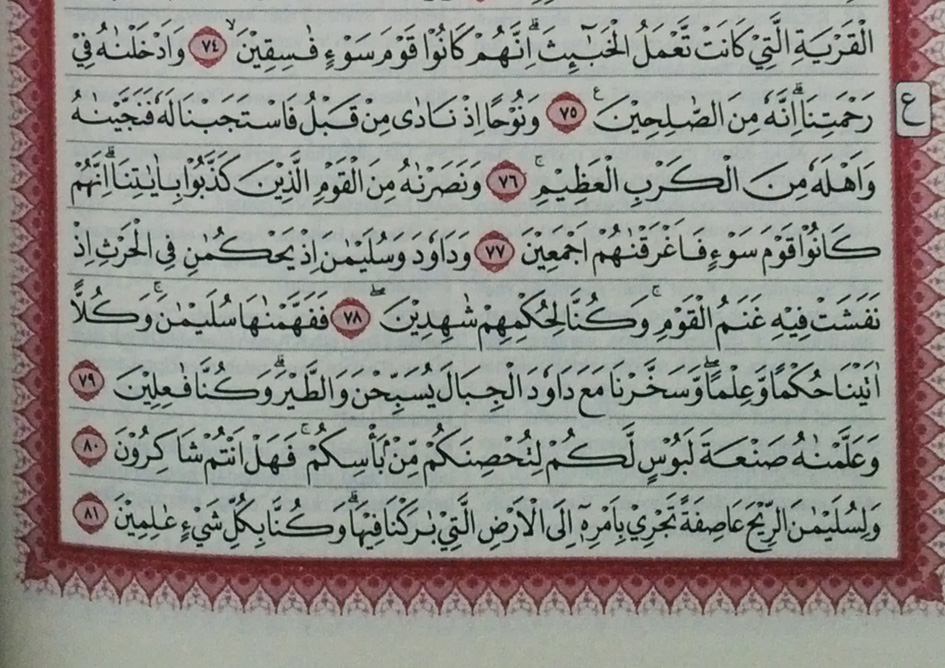 الْقَرْيَةِ الَّتِيْ كَانَتْ تَّعْمَلُ الْخَبٰۤىِٕثَ ۗاِنَّهُمْ كَانُوْا قَوْمَ سَوْءٍ فٰسِقِيْنَ ۙ ٧٤ وَاَدْخَلْنٰهُ فِيْ
رَحْمَتِنَا ۗاِنَّهٗ مِنَ الصّٰلِحِيْنَ ࣖ ٧٥ وَنُوْحًا اِذْ نَادٰى مِنْ قَبْلُ فَاسْتَجَبْنَا لَهٗ فَنَجَّيْنٰهُ ع
وَاَهْلَهٗ مِنَ الْكَرْبِ الْعَظِيْمِ ۚ ٧٦ وَنَصَرْنٰهُ مِنَ الْقَوْمِ الَّذِيْنَ كَذَّبُوْا بِاٰيٰتِنَا ۗاِنَّهُمْ
كَانُوْا قَوْمَ سَوْءٍ فَاَغْرَقْنٰهُمْ اَجْمَعِيْنَ ٧٧ وَدَاوٗدَ وَسُلَيْمٰنَ اِذْ يَحْكُمٰنِ فِى الْحَرْثِ اِذْ
نَفَشَتْ فِيْهِ غَنَمُ الْقَوْمِ ۚ وَكُنَّا لِحُكْمِهِمْ شٰهِدِيْنَ ۖ ٧٨ فَفَهَّمْنٰهَا سُلَيْمٰنَ ۚ وَكُلًّا
اٰتَيْنَا حُكْمًا وَّعِلْمًا ۖوَّسَخَّرْنَا مَعَ دَاوٗدَ الْجِبَالَ يُسَبِّحْنَ وَالطَّيْرَ ۗوَكُنَّا فٰعِلِيْنَ ٧٩
وَعَلَّمْنٰهُ صَنْعَةَ لَبُوْسٍ لَّكُمْ لِتُحْصِنَكُمْ مِّنْۢ بَأْسِكُمْ ۚ فَهَلْ اَنْتُمْ شَاكِرُوْنَ ٨٠
وَلِسُلَيْمٰنَ الرِّيْحَ عَاصِفَةً تَجْرِيْ بِاَمْرِهٖٓ اِلَى الْاَرْضِ الَّتِيْ بٰرَكْنَا فِيْهَا ۗوَكُنَّا بِكُلِّ شَيْءٍ عٰلِمِيْنَ ٨١